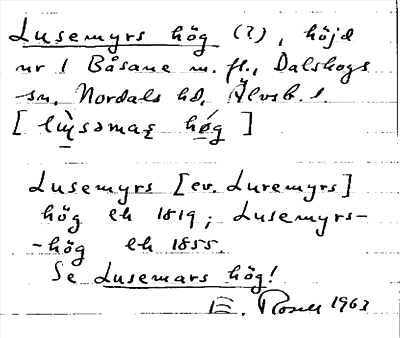 Lusemyrs hög (?), höjd
nr 1 Båsane m. fl., Dalskogs
sn, Nordals hd, Älvsb. l.
[ lùsəmaʂ hǿg ]
Lusemyrs [ev. Luremyrs]
hög ek 1819; Lusemyrs-
-hög ek 1855.
Se Lusemars hög!
E. Rosell 1963